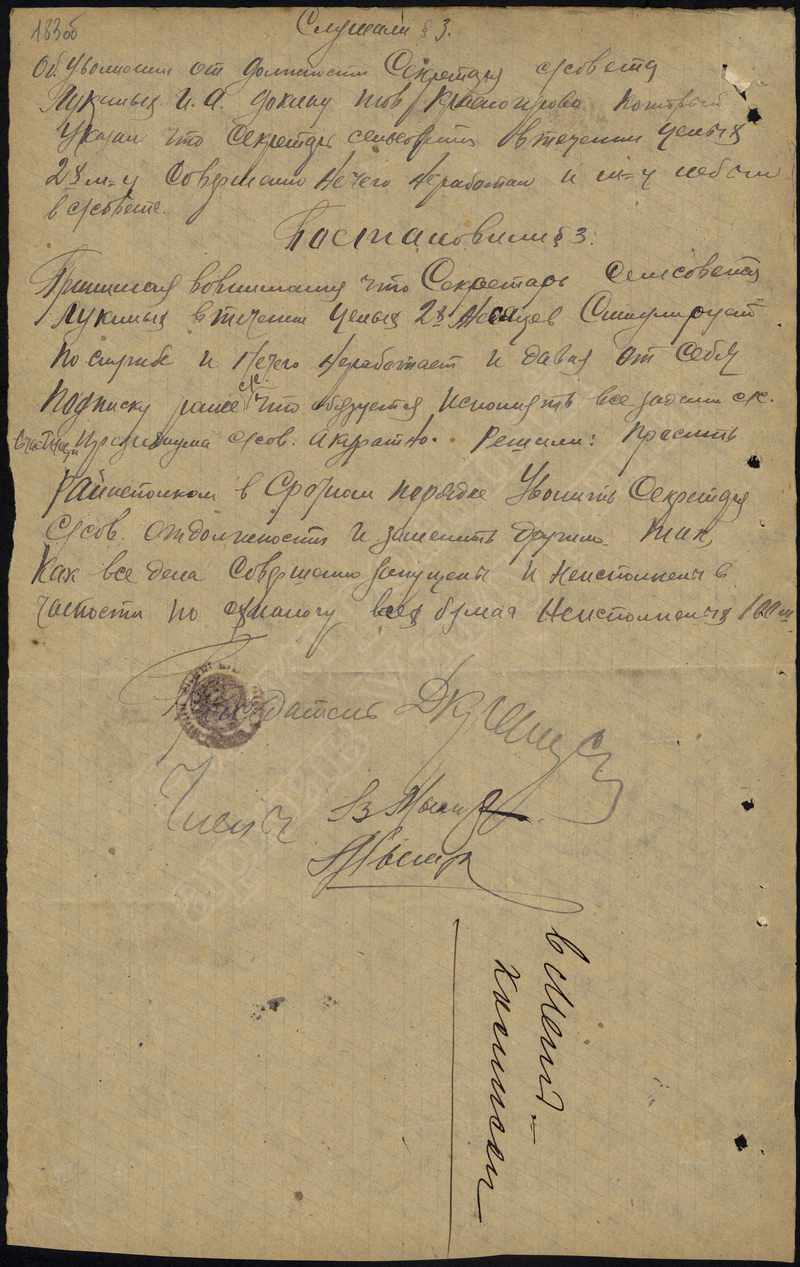 183об
Слушали § 3.
Об Увольнении от должности Секретаря с/совета
Лукиных И. А. доклад тов Красногирова который
Указал что Секретарь сельсовета втечении целых
2х м-ц Совершенно Нечего Неработал и
в с/совете.
Постановили § 3.
Принимая вовнимания что Секретарь Сельсовета
Лукиных втечении целых 2х Месяцев Симулирует
по службе и Нечего Неработает и давая от Себя
подписку ранее что обязуется Исполнять все задания с/с.
Президиума с/сов. Акуратно. Решили: просить
Райисполком в Срочном порядке Уволить Секретаря
С/сов. отдолжности и заменить другим так,
Как все дела Совершенно запущены и Неисполнены в
частности по с/налогу всех бумаг Неисполненых 100 ш
Председатель
Члены